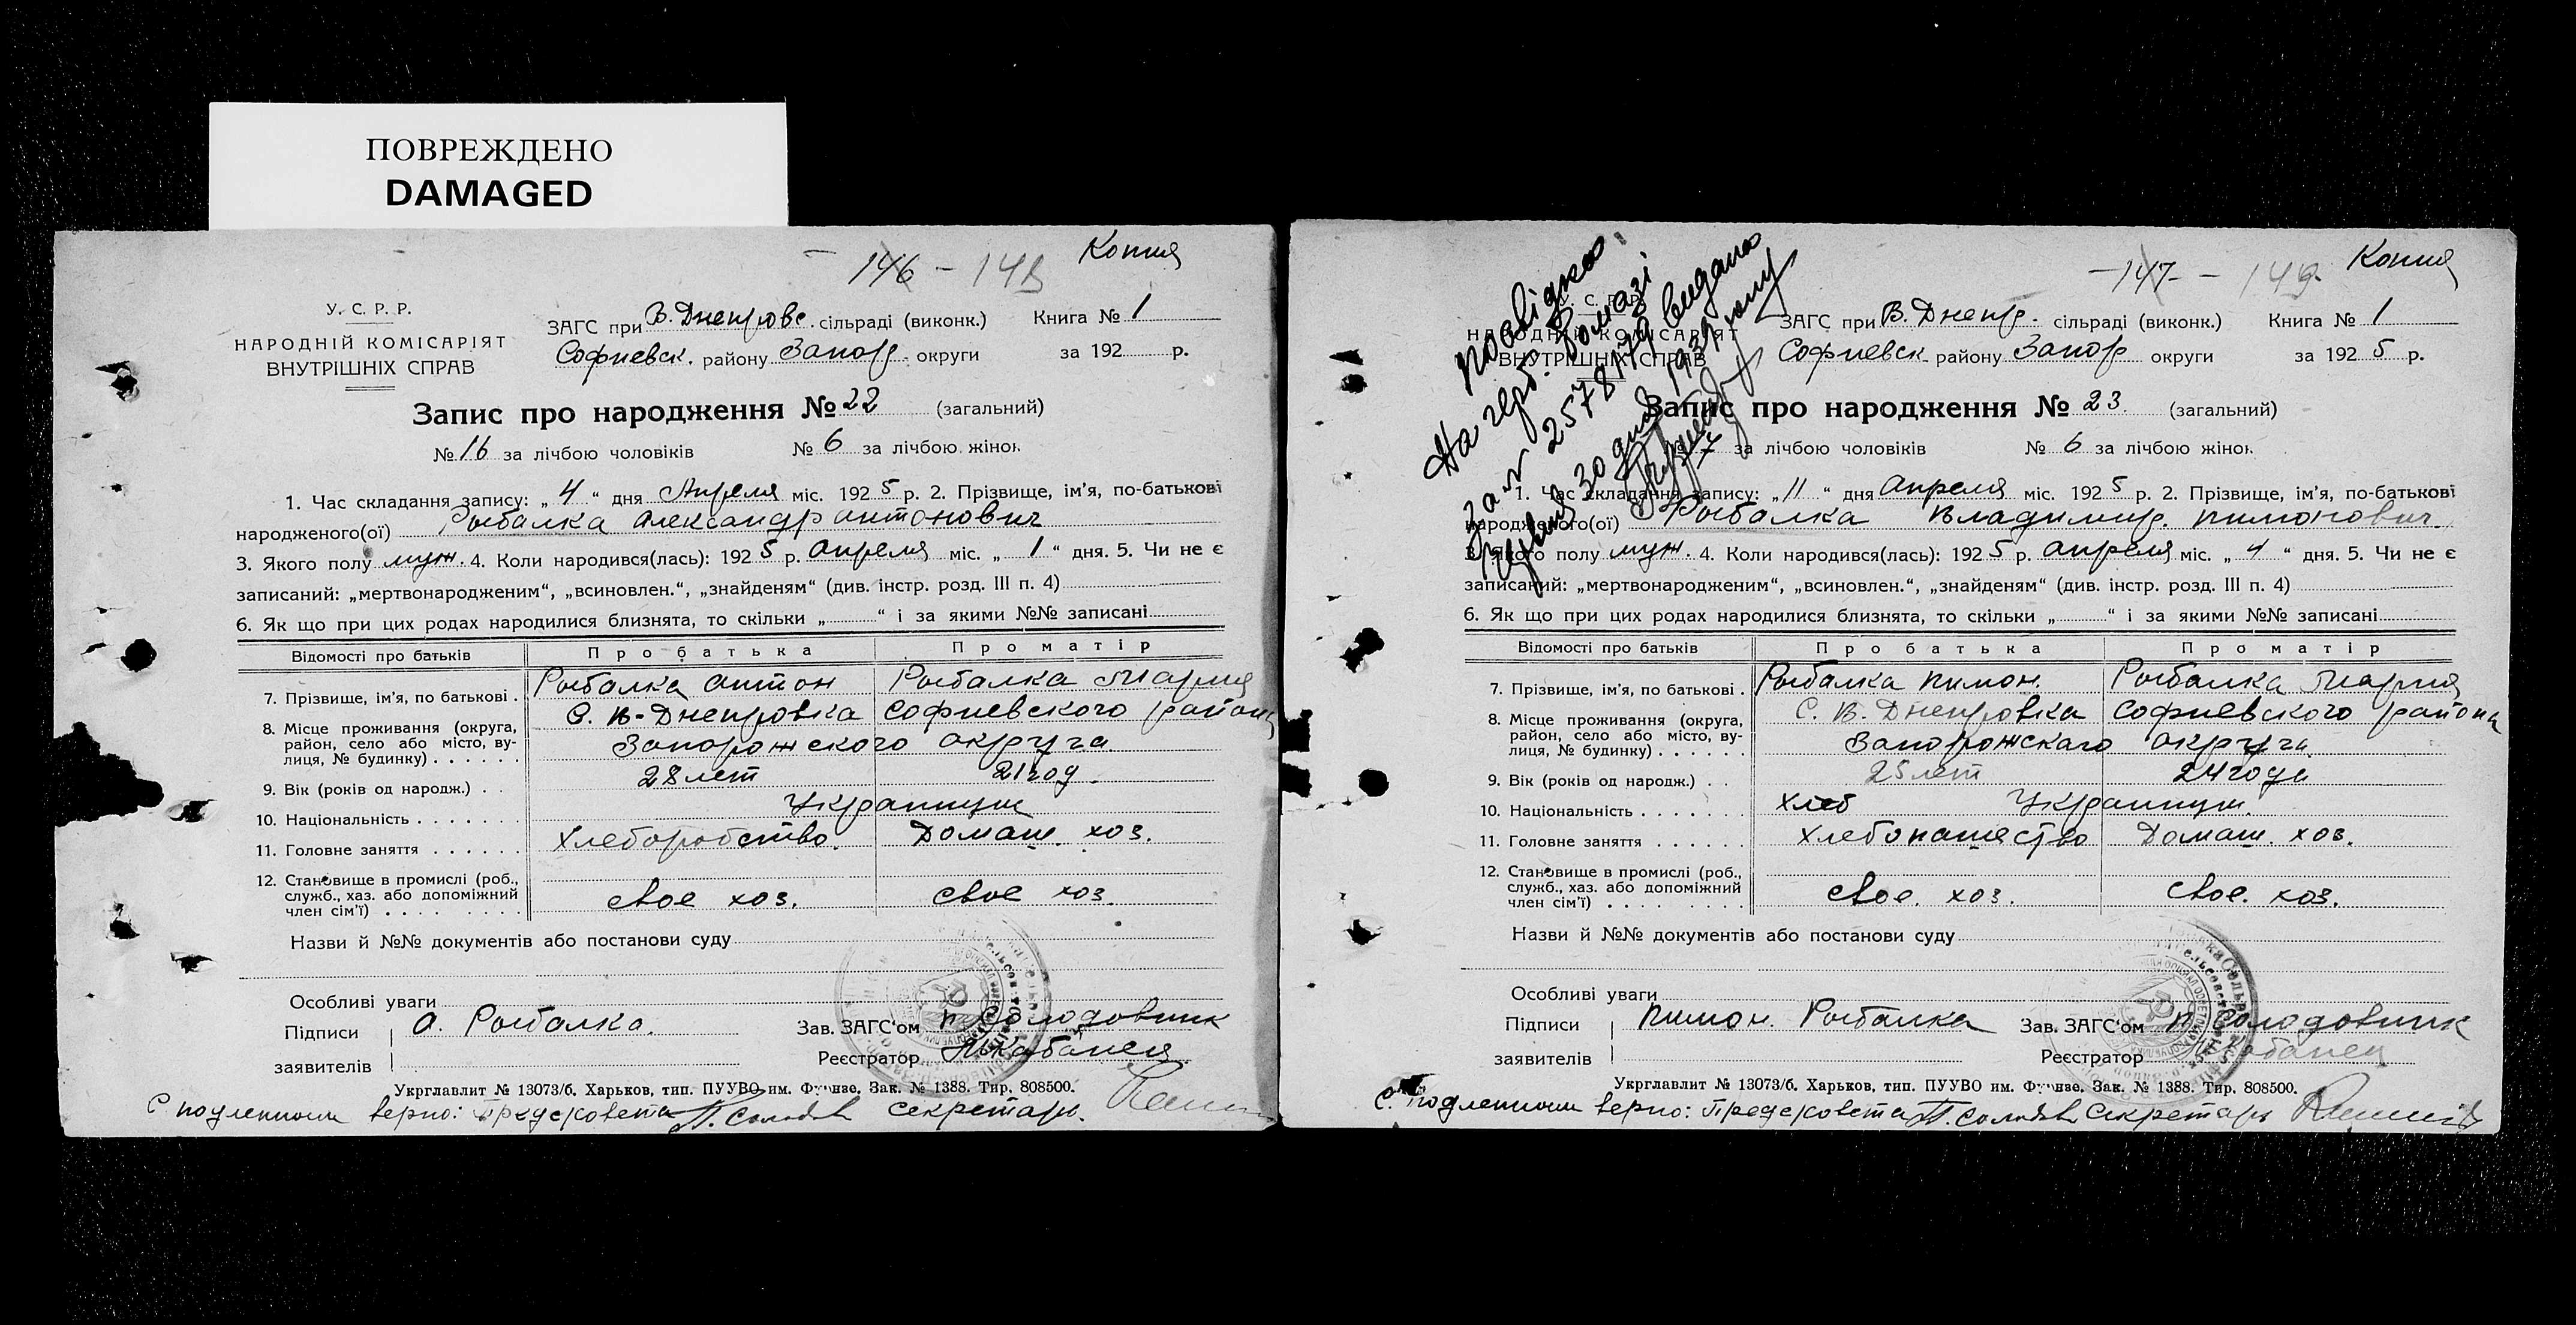 ПОВРЕЖДЕНО
DAMAGED
146 - 148 Копия
У. С. Р. Р.
НАРОДНІЙ КОМІСАРІЯТ
ВНУТРІШНІХ СПРАВ
ЗАГС при В. Днепровс. сільраді (виконк.) Книга № 1
Софиевск. району Запор. округи за 192 р.
Запис про народження № 22 (загальний)
№ 16 за лічбою чоловіків № 6 за лічбою жінок
1. Час складання запису: „ 4 “ дня Апреля міс. 192 5 р. 2. Прізвище, ім'я, по-батькові
народженого(ої) Рыбалка Александр Антонович
3. Якого полу муж. 4. Коли народився(лась): 192 5 р. Апреля міс. „ 1 “ дня. 5. Чи не є
записаний: „мертвонародженим“, „всиновлен.“, „знайденям“ (див. інстр. розд. III п. 4)
6. Як що при цих родах народилися близнята, то скільки „ “ і за якими №№ записані
Відомості про батьків Про батька Про матір
7. Прізвище, ім'я, по батькові . Рыбалка Антон Рыбалка Мария
8. Місце проживання (округа, район, село або місто, вулиця, № будинку) С. В-Днепровка Софиевского района
Запорожского округа
9. Вік (років од народж.) 28 лет 21 год.
10. Національність Украинцы
11. Головне заняття Хлеборобство. Домаш. хоз.
12. Становище в промислі (роб., служб., хаз. або допоміжний член сім'ї) свое хоз. свое хоз.
Назви й №№ документів або постанови суду
Особливі уваги
Підписи заявителів А. Рыбалка. Зав. ЗАГС'ом П. Солодовник
Реєстратор Кабанец
Укрглавлит № 13073/б. Харьков, тип. ПУУВО им. Фрунзе. Зак. № 1388. Тир. 808500.
С подленным верно: Предсковета П. Солодов Секретарь
147 - 149. Копия
посвідка
На герб. бомазі
за № 257817 видана
30 дня 1939 року
У. С. Р. Р.
НАРОДНІЙ КОМІСАРІЯТ
ВНУТРІШНІХ СПРАВ
ЗАГС при В. Днепр. сільраді (виконк.) Книга № 1
Софиевск. району Запор округи за 192 5 р.
Запис про народження № 23. (загальний)
№ 17 за лічбою чоловіків № 6 за лічбою жінок
1. Час складання запису: „ 11 “ дня Апреля міс. 192 5 р. 2. Прізвище, ім'я, по-батькові
народженого(ої) Рыбалка Владимир. Пимонович
3. Якого полу муж. 4. Коли народився(лась): 192 5 р. Апреля міс. „ 4 “ дня. 5. Чи не є
записаний: „мертвонародженим“, „всиновлен.“, „знайденям“ (див. інстр. розд. III п. 4)
6. Як що при цих родах народилися близнята, то скільки „ “ і за якими №№ записані
Відомості про батьків Про батька Про матір
7. Прізвище, ім'я, по батькові . Рыбалка Пимон. Рыбалка Мария
8. Місце проживання (округа, район, село або місто, вулиця, № будинку) С. В. Днепровка Софиевского района
Запорожскаго округа
9. Вік (років од народж.) 25 лет 24 года
10. Національність Хлеб Украинцы.
11. Головне заняття Хлебопашество Домаш. хоз.
12. Становище в промислі (роб., служб., хаз. або допоміжний член сім'ї) свое. хоз. свое. хоз.
Назви й №№ документів або постанови суду
Особливі уваги
Підписи заявителів Пимон. Рыбалка Зав. ЗАГС'ом П. Солодовник
Реєстратор Кабанец
Укрглавлит № 13073/б. Харьков, тип. ПУУВО им. Фрунзе. Зак. № 1388. Тир. 808500.
С подленным верно: Предсковета П. Солодов Секретарь